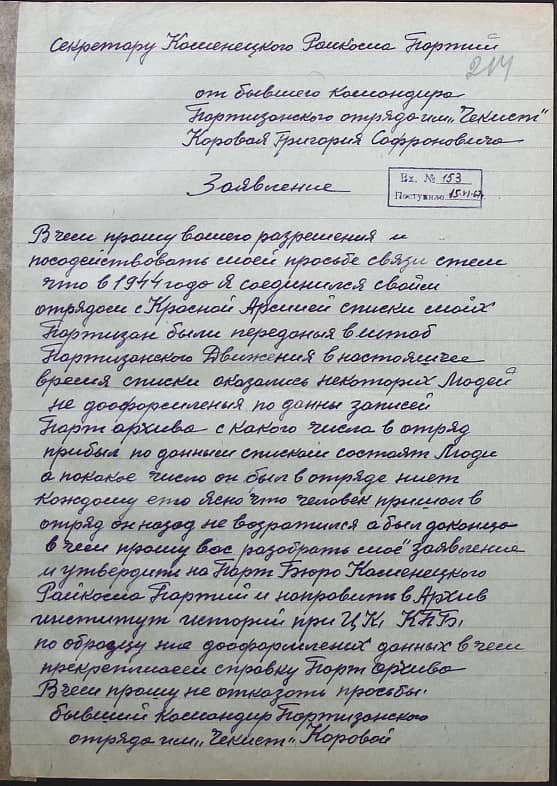 Секретару Каменецкого Райкома Партий
214
от бывшего командира
Партизанского отряда им „Чекист"
Каровая Григория Софроновича
Вх. № 153
Поступило 15.VI.67г.
Заявление
В чем прошу вашего разрешения и
посодействовать моей просьбе связи стем
что в 1944 годо я соединился свойм
отрядом с Красной Армией списки моих
Партизан были переданыя в штаб
Партизанского Движения в настоящее
время списки оказались некоторих Людей
не дооформленыя по данны записей
Парт архива с какого числа в отряд
прибыл по данным спискам состоят Люди
а покакое число он был в отряде нист
каждому ето ясно что человек пришол в
отряд он назад не возратился а был доконца
в чем прошу вас разобрать моё заявление
и утвердити на Парт Бюро Каменецкого
Райкома Партий и направить в Архив
институт историй при ЦК, КПБ,
по образцу не дооформлених данных в чем
прекрепляем справку Парт архива
В чем прошу не отказать просьбы.
бывший Командир Партизанского
отряда им „Чекист" Коровой